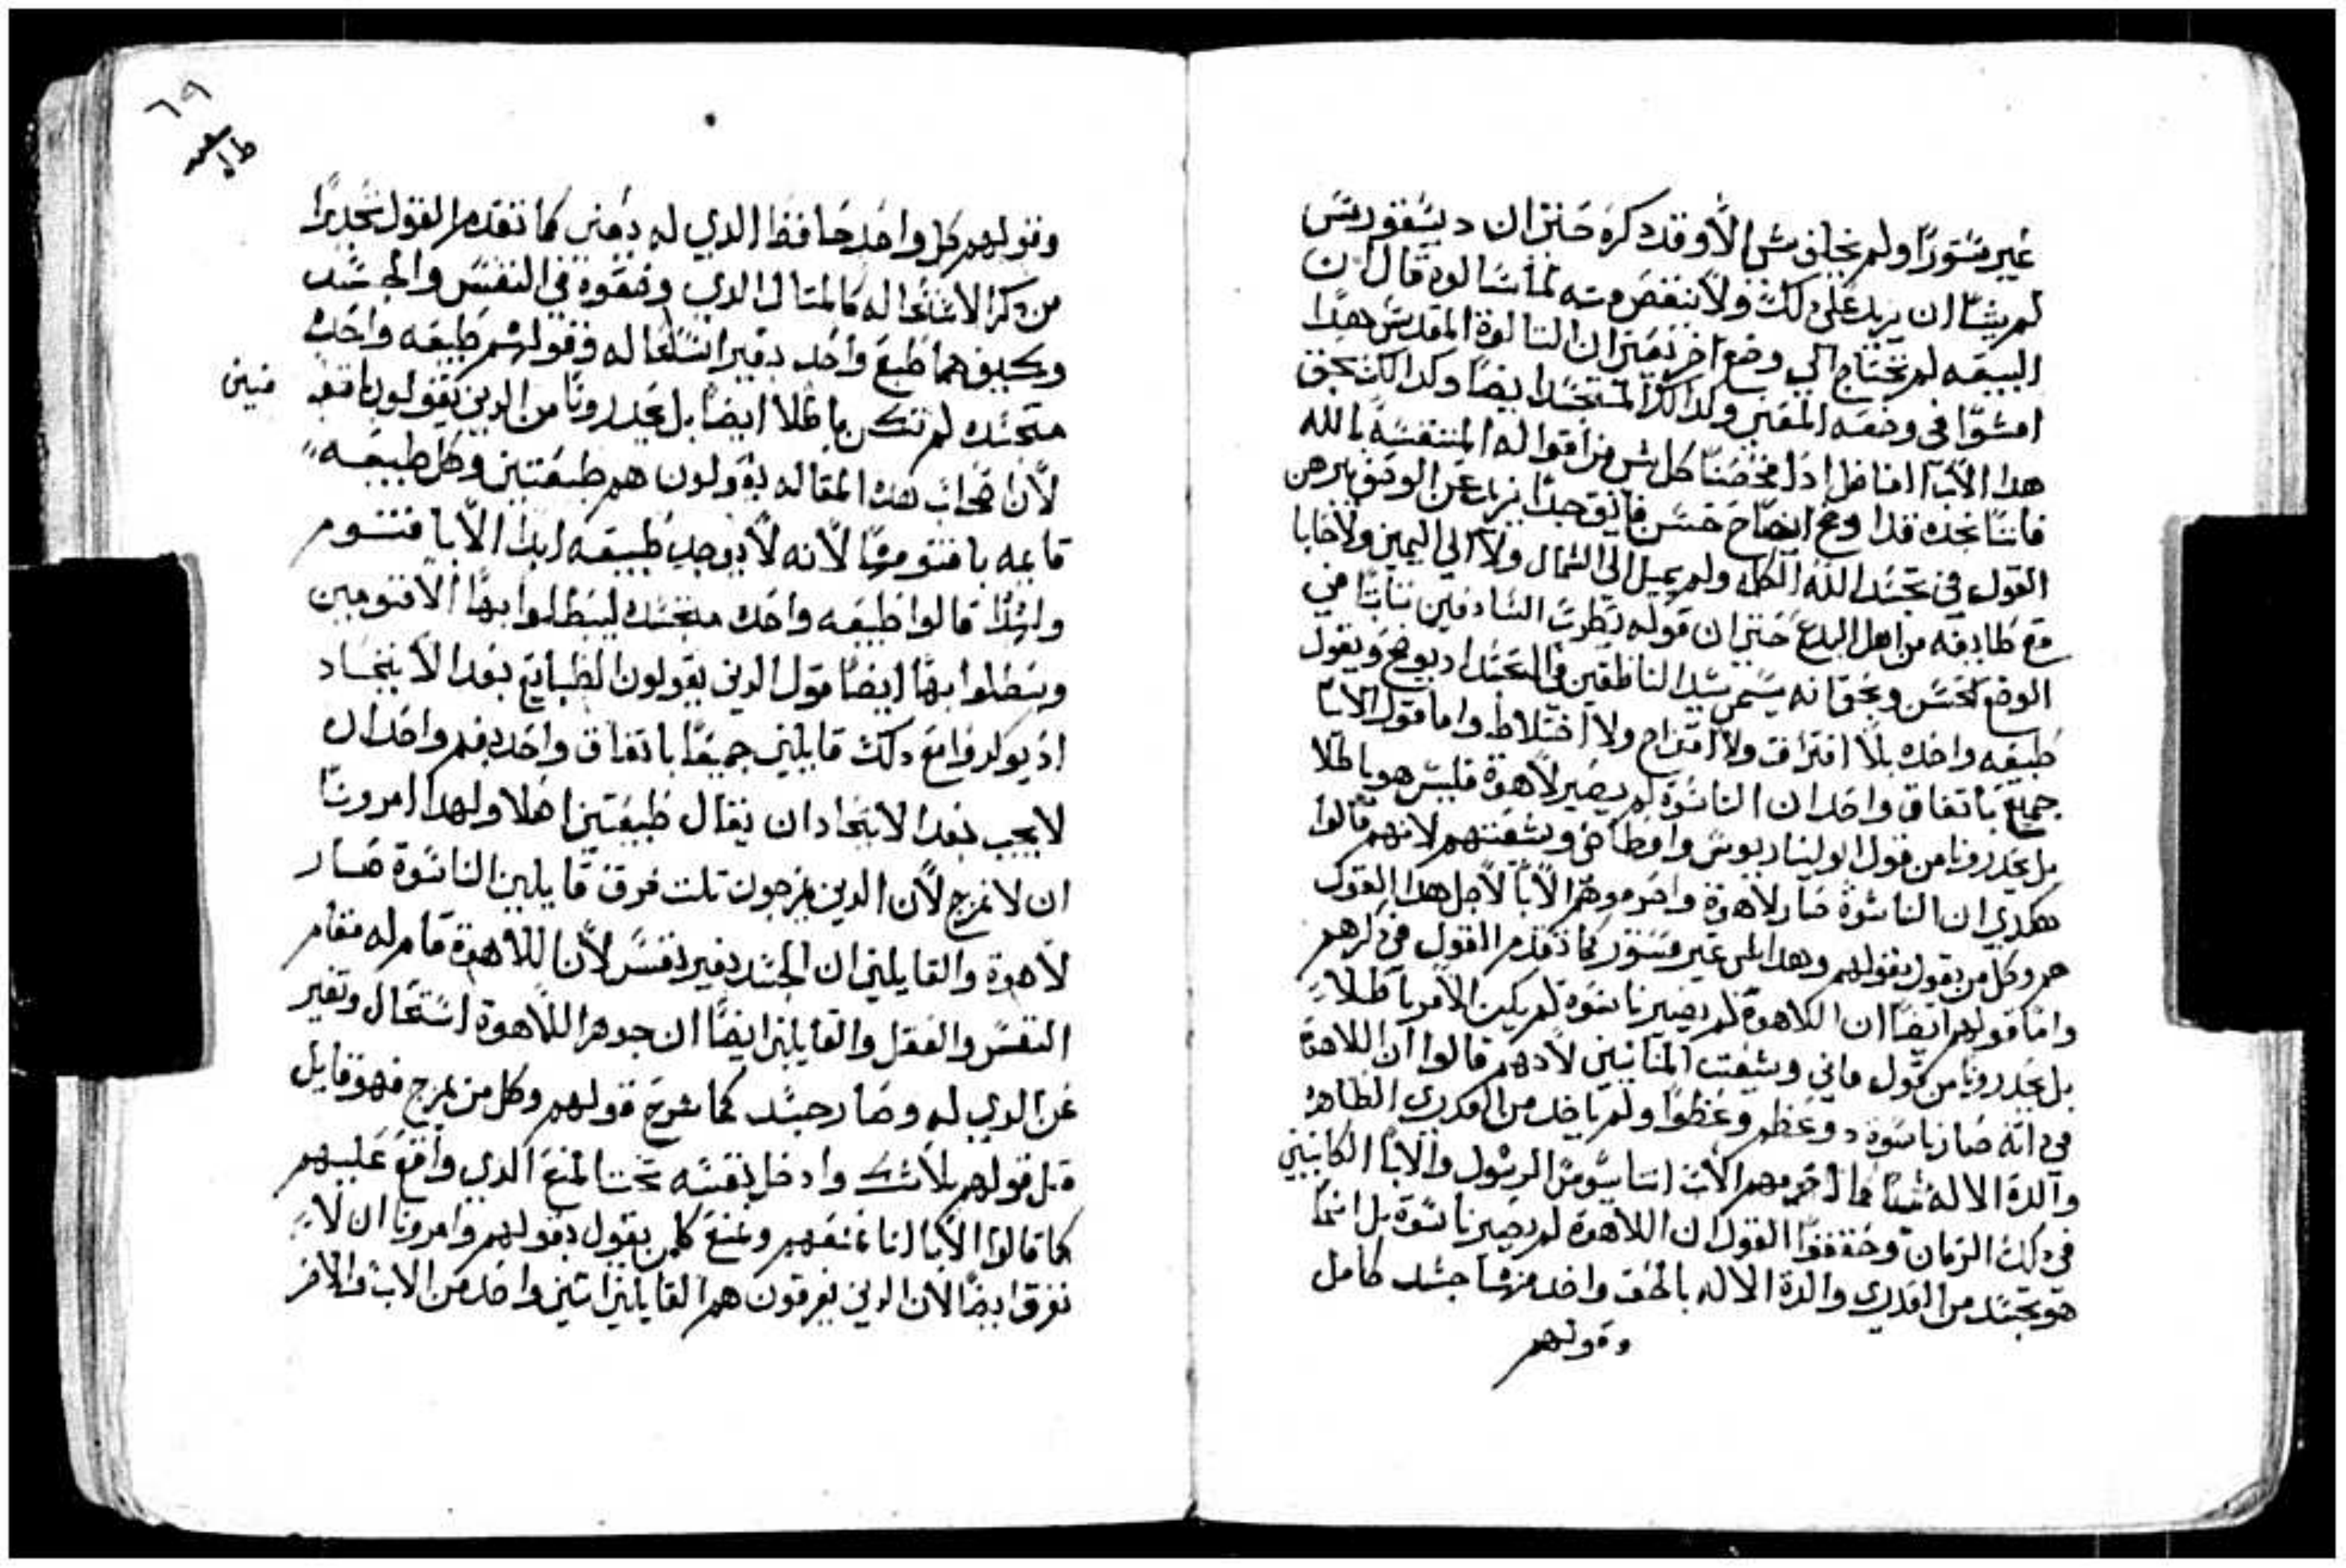 غير مستورا ولم نخاف شي الا وقد دكره حتي ان ديسقورس
لم يشا ان يزيد علي دلك ولا ينقص منه لما سالوه قال ان
البيعه لم تحتاج الي وضع اخر بعتران التالوة المقدس هدا
هدا الابا افاضل اد فحصنا كل شي من اقواله المتنفسه بالله
فاننا نجده قد اوضح ايضاح حسن فايق جدا يزيد عن الوصف يبرهن
القول في تجسد الله الكله ولم يميل الي الشمال ولا الي اليمين ولا حابا
مع طايفه من اهل البدع حتي ان قوله يطرب السادفين تباتا في
الوضع الحسن وبحق انه يسمي سيد الناطقين في التجسد اد يوضح ويقول
طبيعه واحده بلا افتراق ولا امتزاج ولا اختلاط واما قول الابا
جميع باتفاق واحد ان الناسوة لم يصير لاهوة فليس هو باطلا
بل يحدرونا من قول اوليناريوس واوطاخي وشيعتهم لانهم قالوا
هكدي ان الناسوة صار لاهوة واحرموهم الابا لاجل هدا القول
هم وكل من يقول بقولهم وهدا الشي غير مستور كما تقدم القول في دكرهم
واما قولهم ايضا ان اللاهوة لم يصير ناسوة لم يكن الامر باطلا
بل يحدرونا من قول ماني وشيعت المنانيين لانهم قالوا ان اللاهوة
في انه صار ناسوة دو عظم وعظوا ولم ياخد من العدري الطاهرة
والدة الاله شيا كما احرمهم الاب اتناسيوس الرسول والابا الكاينين
في دلك الزمان وحققوا القول ان اللاهوة لم يصير ناسوة بل انما
هو تجسد من العدري والدة الاله بالحق واخد منها جسد كامل
وقولهم
٦٩
وقولهم كل واحد حافظ الدي له يعني كما تقدم القول تحديرا
من دكر الاستحاله كالمتال الدي وضعوه في النفس والجسد
وكيف هما طبع واحد بغير استحاله وقولهم طبيعه واحده
متجسده لم تكن باطلا ايضا بل يحدرونا من الدين يقولون باقنو
مين
لان اصحاب هده المقاله يقولون هم طبيعتين وكل طبيعه
قايمه باقنومها لانه لا يوجد طبيعه ابدا الا باقنوم
ولهدا قالوا طبيعه واحده متجسده ليبطلوا بها الاقنومين
ويبطلوا بها ايضا قول الدين يقولون الطبايع بعد الاتحاد
اد يولدوا مع دلك قايلين جميعا باتفاق واحد بفم واحد ان
لا يجب بعد الاتحاد ان يقال طبيعتين اصلا ولهدا امرونا
ان لا نمزج لان الدين يمزجون تلت فرق قايلين الناسوة صار
لاهوة والقايلين ان الجسد بغير نفس لان اللاهوة قام له مقام
النفس والعقل والقايلين ايضا ان جوهر اللاهوة استحال وتغير
عن الدي له وصار جسد كما شرح قولهم وكل من يمزج فهو قايل
متل قولهم بلا شك وادخل نفسه تحت المنع الدي واقع عليهم
كما قالوا الابا اننا نمنعهم ونمنع كلمن يقول بقولهم وامرونا ان لا
نفرق ايضا لان الدين يفرقون هم القايلين اتنين واحد من الاب والاخر